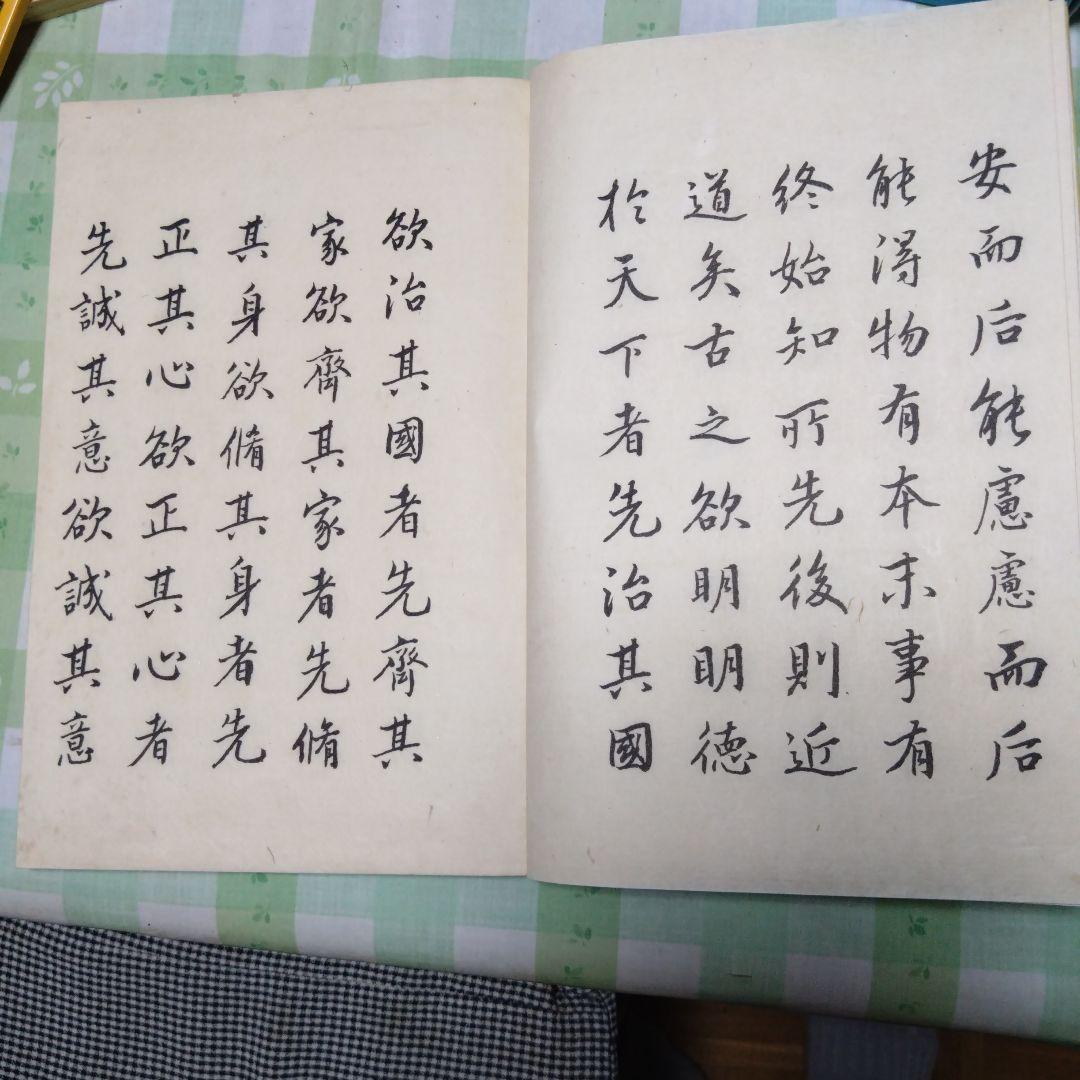 安而后能慮慮而后
能得物有本末事有
終始知所先後則近
道矣古之欲明明德
於天下者先治其國
欲治其國者先齊其
家欲齊其家者先脩
其身欲脩其身者先
正其心欲正其心者
先誠其意欲誠其意